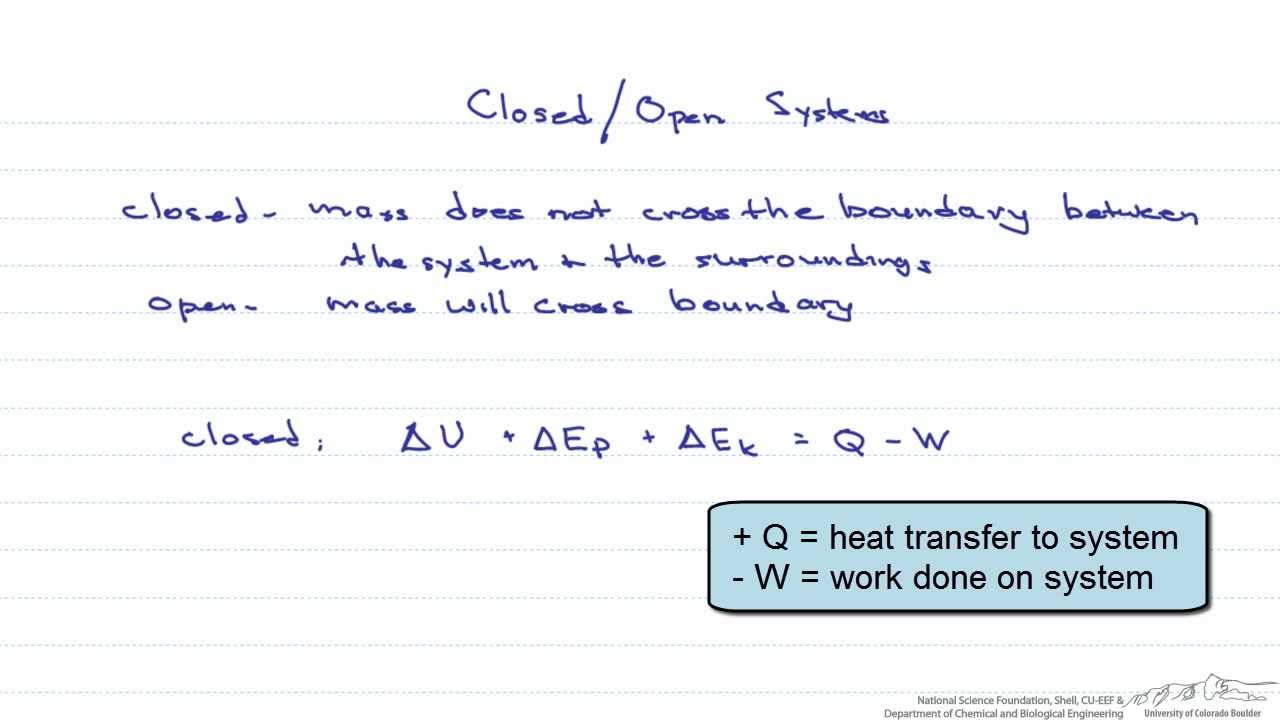 Closed/Open Systems
closed - mass does not cross the boundary between
the system + the surroundings
open - mass will cross boundary
closed: ΔU + ΔEp + ΔEk = Q - W
+ Q = heat transfer to system
- W = work done on system
National Science Foundation, Shell, CU-EEF &
Department of Chemical and Biological Engineering
University of Colorado Boulder